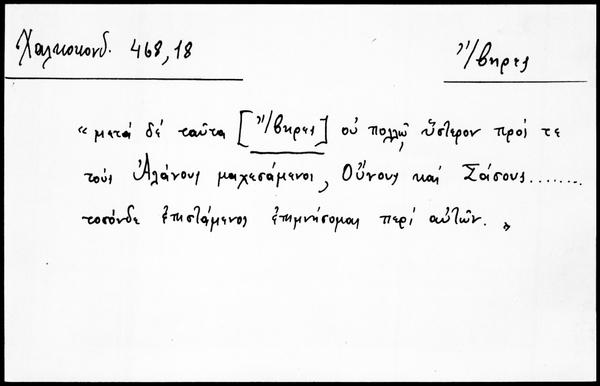 Χαλκοκονδ. 468,18
Ἴβηρες
«μετά δέ ταῦτα [Ἴβηρες] οὐ πολλῷ ὕστερον πρός τε
τούς Ἀλάνους μαχεσάμενοι, Οὔνους καί Σάσους........
τοσόνδε ἐπιστάμενος ἐπιμνήσομαι περί αὐτῶν.»